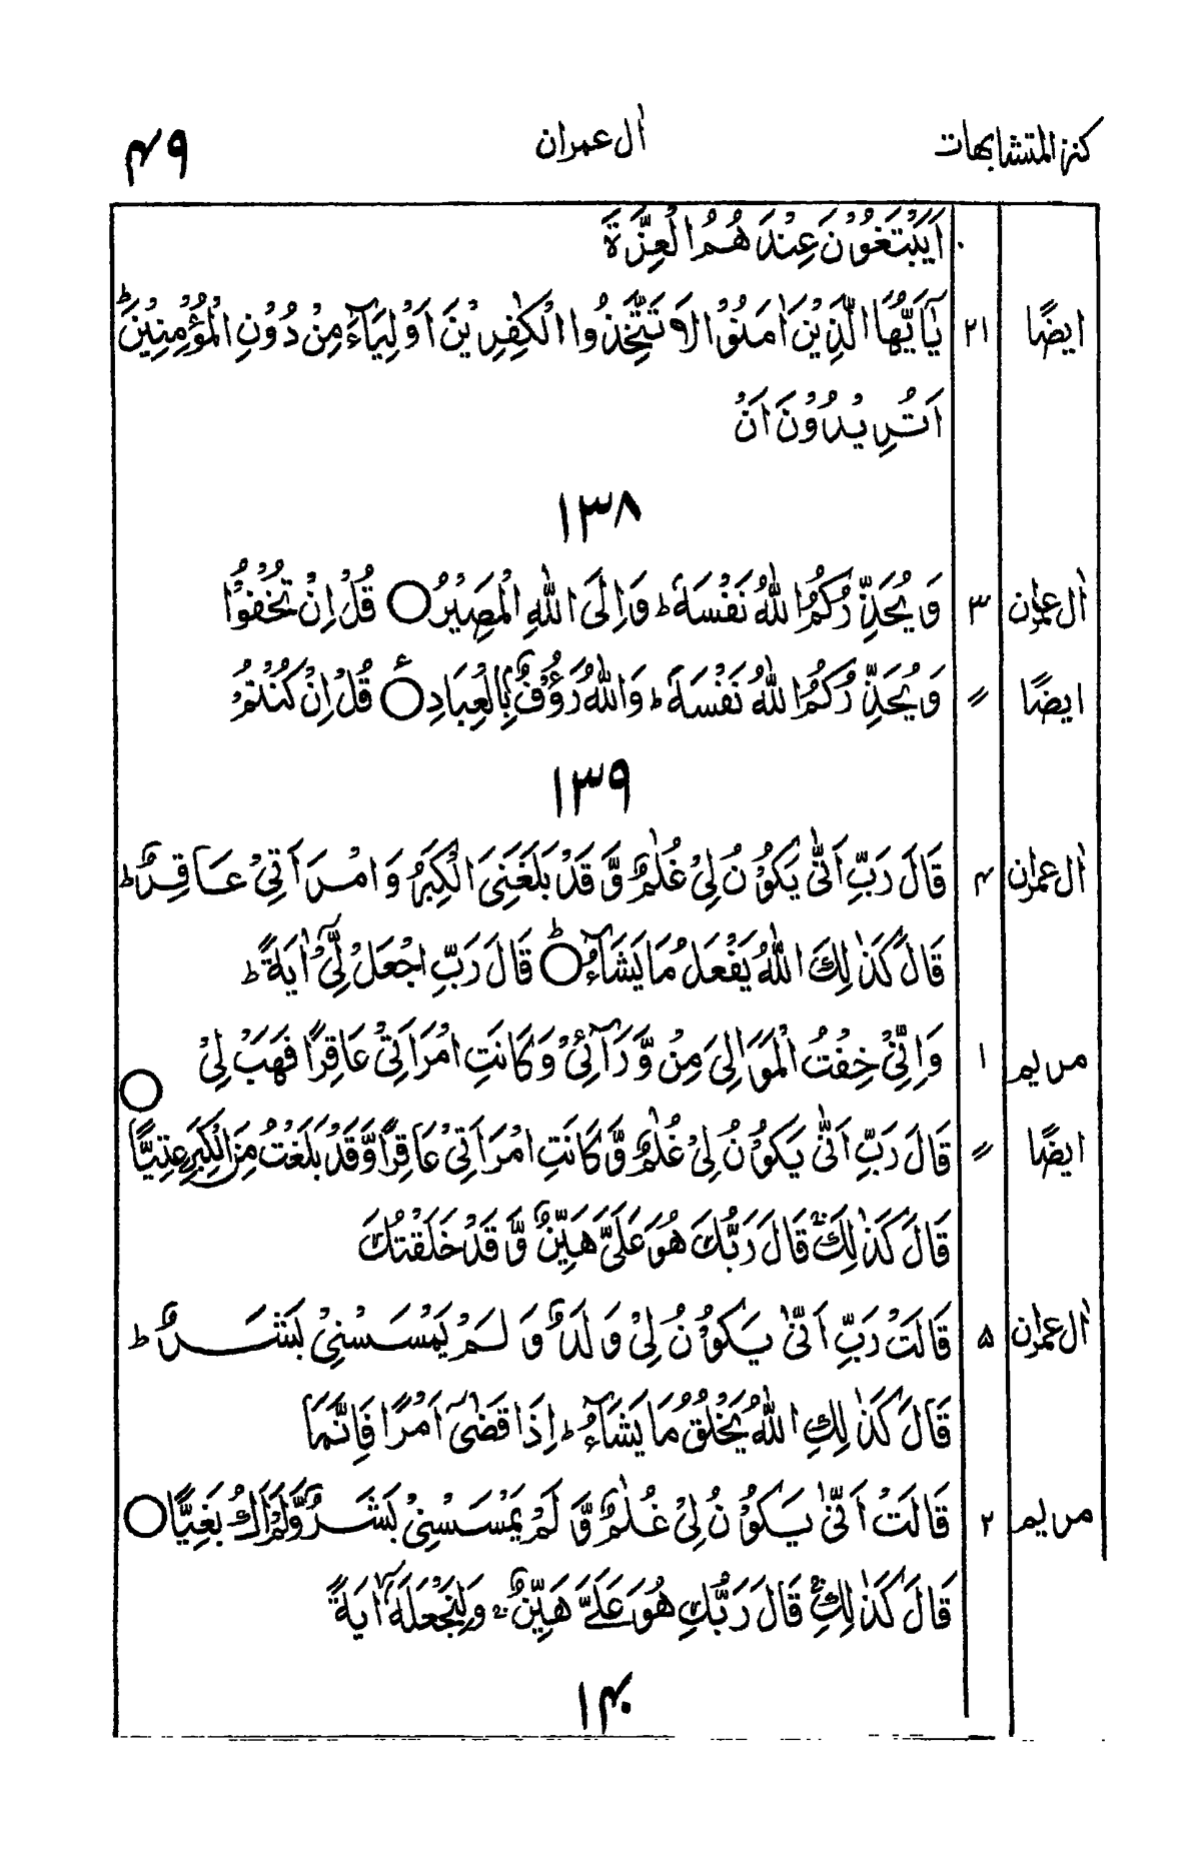 كنز المتشابهات اٰل عمران ۴۹
اَيَبْتَغُوْنَ عِنْدَهُمُ الْعِزَّةَ
ايضًا ۲۱ يٰٓاَيُّهَا الَّذِيْنَ اٰمَنُوْا لَا تَتَّخِذُوا الْكٰفِرِيْنَ اَوْلِيَآءَ مِنْ دُوْنِ الْمُؤْمِنِيْنَ ؕ
اَتُرِيْدُوْنَ اَنْ
۱۳۸
اٰل عمران ۳ وَيُحَذِّرُكُمُ اللّٰهُ نَفْسَهٗ ؕ وَاِلَى اللّٰهِ الْمَصِيْرُ ○ قُلْ اِنْ تُخْفُوْا
ايضًا 〃 وَيُحَذِّرُكُمُ اللّٰهُ نَفْسَهٗ ؕ وَاللّٰهُ رَءُوْفٌۢ بِالْعِبَادِ ○ قُلْ اِنْ كُنْتُمْ
۱۳۹
اٰل عمران ۴ قَالَ رَبِّ اَنّٰى يَكُوْنُ لِيْ غُلٰمٌ وَّقَدْ بَلَغَنِيَ الْكِبَرُ وَامْرَاَتِيْ عَاقِرٌ ؕ
قَالَ كَذٰلِكَ اللّٰهُ يَفْعَلُ مَا يَشَآءُ ○ قَالَ رَبِّ اجْعَلْ لِّيْٓ اٰيَةً ؕ
مريم ۱ وَاِنِّيْ خِفْتُ الْمَوَالِيَ مِنْ وَّرَآئِيْ وَكَانَتِ امْرَاَتِيْ عَاقِرًا فَهَبْ لِيْ
ايضًا 〃 قَالَ رَبِّ اَنّٰى يَكُوْنُ لِيْ غُلٰمٌ وَّكَانَتِ امْرَاَتِيْ عَاقِرًا وَّقَدْ بَلَغْتُ مِنَ الْكِبَرِ عِتِيًّا ○
قَالَ كَذٰلِكَ ۚ قَالَ رَبُّكَ هُوَ عَلَيَّ هَيِّنٌ وَّقَدْ خَلَقْتُكَ
اٰل عمران ۵ قَالَتْ رَبِّ اَنّٰى يَكُوْنُ لِيْ وَلَدٌ وَّلَمْ يَمْسَسْنِيْ بَشَرٌ ؕ
قَالَ كَذٰلِكِ اللّٰهُ يَخْلُقُ مَا يَشَآءُ ؕ اِذَا قَضٰٓى اَمْرًا فَاِنَّمَا
مريم ۲ قَالَتْ اَنّٰى يَكُوْنُ لِيْ غُلٰمٌ وَّلَمْ يَمْسَسْنِيْ بَشَرٌ وَّلَمْ اَكُ بَغِيًّا ○
قَالَ كَذٰلِكِ ۚ قَالَ رَبُّكِ هُوَ عَلَيَّ هَيِّنٌ ۚ وَلِنَجْعَلَهٗٓ اٰيَةً
۱۴۰